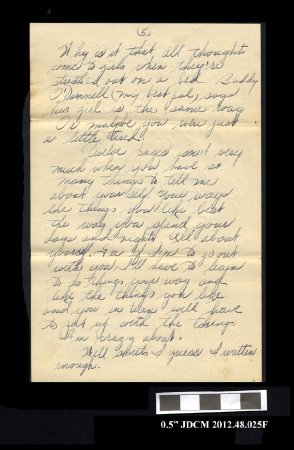 (5)
Why is it that all thoughts
come to girls when they're
stretched out on a bed. Buddy
O'Donnell (my best pal) says
his girl is the same way
Or maybe you were just
a little tired.
Twelve pages isn't very
much when you have so
many things to tell me
about yourself. Your ways
the things you like best
the way you spend your
days and nights. All about
yourself. For if I'm to go out
with you I'll have to learn
to do things your way and
like the things you like
and you in turn will have
to put up with the things
I'm crazy about.
Well sweets I guess I written
enough.
0.5" JDCM 2012.48.025F